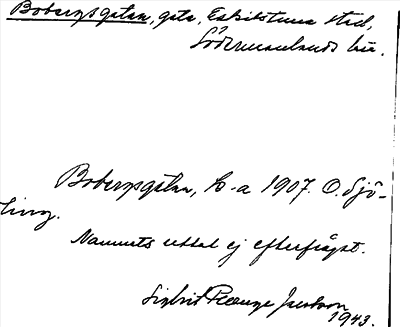 Bobergsgatan, gata, Eskilstuna stad,
Södermanlands län.
Bobergsgatan, E-a 1907. O. Sjö-
ling.
Namnets uttal ej efterfrågat.
Sigbrit Plænge Jacobson
1943.